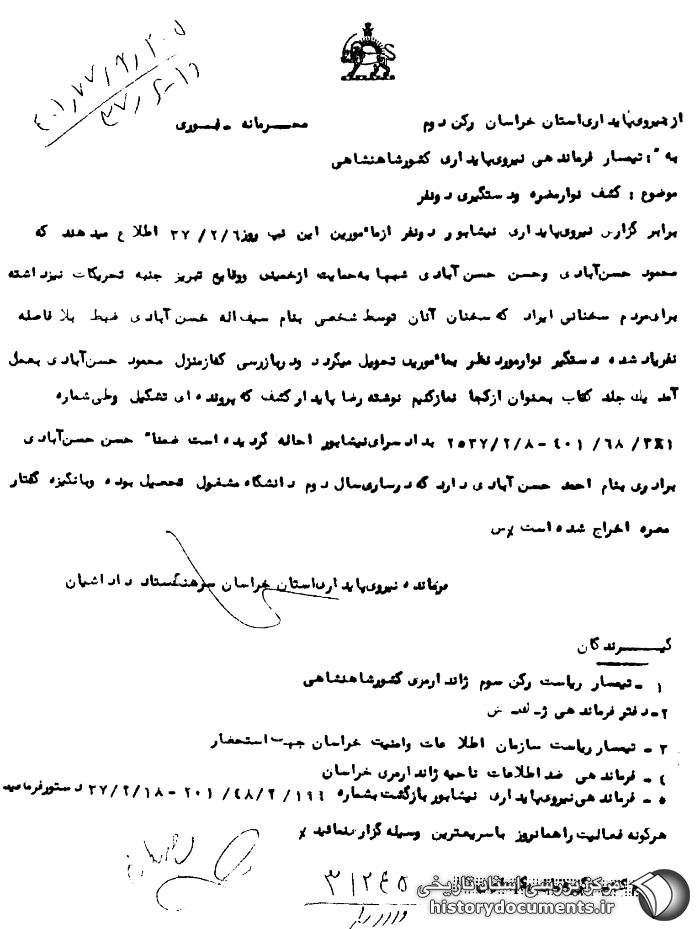 از نیروی پایداری استان خراسان رکن دوم محرمانه - فوری
به : تیمسار فرماندهی نیروی پایداری کشور شاهنشاهی
موضوع : کشف نوار مضره و دستگیری دو نفر
برابر گزارش نیروی پایداری نیشابور دو نفر از مامورین این تیپ روز ۳۷/۲/۶ اطلاع میدهند که
محمود حسن آبادی و حسن حسن آبادی شبها به حمایت از خمینی و وقایع تبریز جنبه تحریکات نیز داشته
برای مردم سخنانی ایراد که سخنان آنان توسط شخصی بنام سیف اله حسن آبادی ضبط بلافاصله
نفر یاد شده دستگیر نوار مورد نظر بمامورین تحویل میگردد و در بازرسی که از منزل محمود حسن آبادی بعمل
آمد یک جلد کتاب بعنوان از کجا آغاز کنیم نوشته رضا پایدار کشف که پرونده ای تشکیل و طی شماره
۴۰۱/۶۸/ - ۲۵۳۷/۲/۸ بدادسرای نیشابور احاله گردیده است ضمنا حسن حسن آبادی
برادری بنام احمد حسن آبادی دارد که در ساری سال دوم دانشگاه مشغول تحصیل بوده و بانگیزه گفتار
مضره اخراج شده است
فرمانده نیروی پایداری استان خراسان سرهنگ ستاد داداشیان
گیرندگان
۱ - تیمسار ریاست رکن سوم ژاندارمری کشور شاهنشاهی
۲- دفتر فرماندهی
۳ - تیمسار ریاست سازمان اطلاعات و امنیت خراسان جهت استحضار
۴ - فرماندهی ضد اطلاعات ناحیه ژاندارمری خراسان
۵ - فرماندهی نیروی پایداری نیشابور بازگشت بشماره ۲۰۱/۴۸/۲/۱۹۴ - ۳۷/۲/۱۸ دستور فرمایید
هرگونه فعالیت را همانروز با سریعترین وسیله گزارش نمائید
۳۱۲۴۵
مرکز بررسی اسناد تاریخی
historydocuments.ir